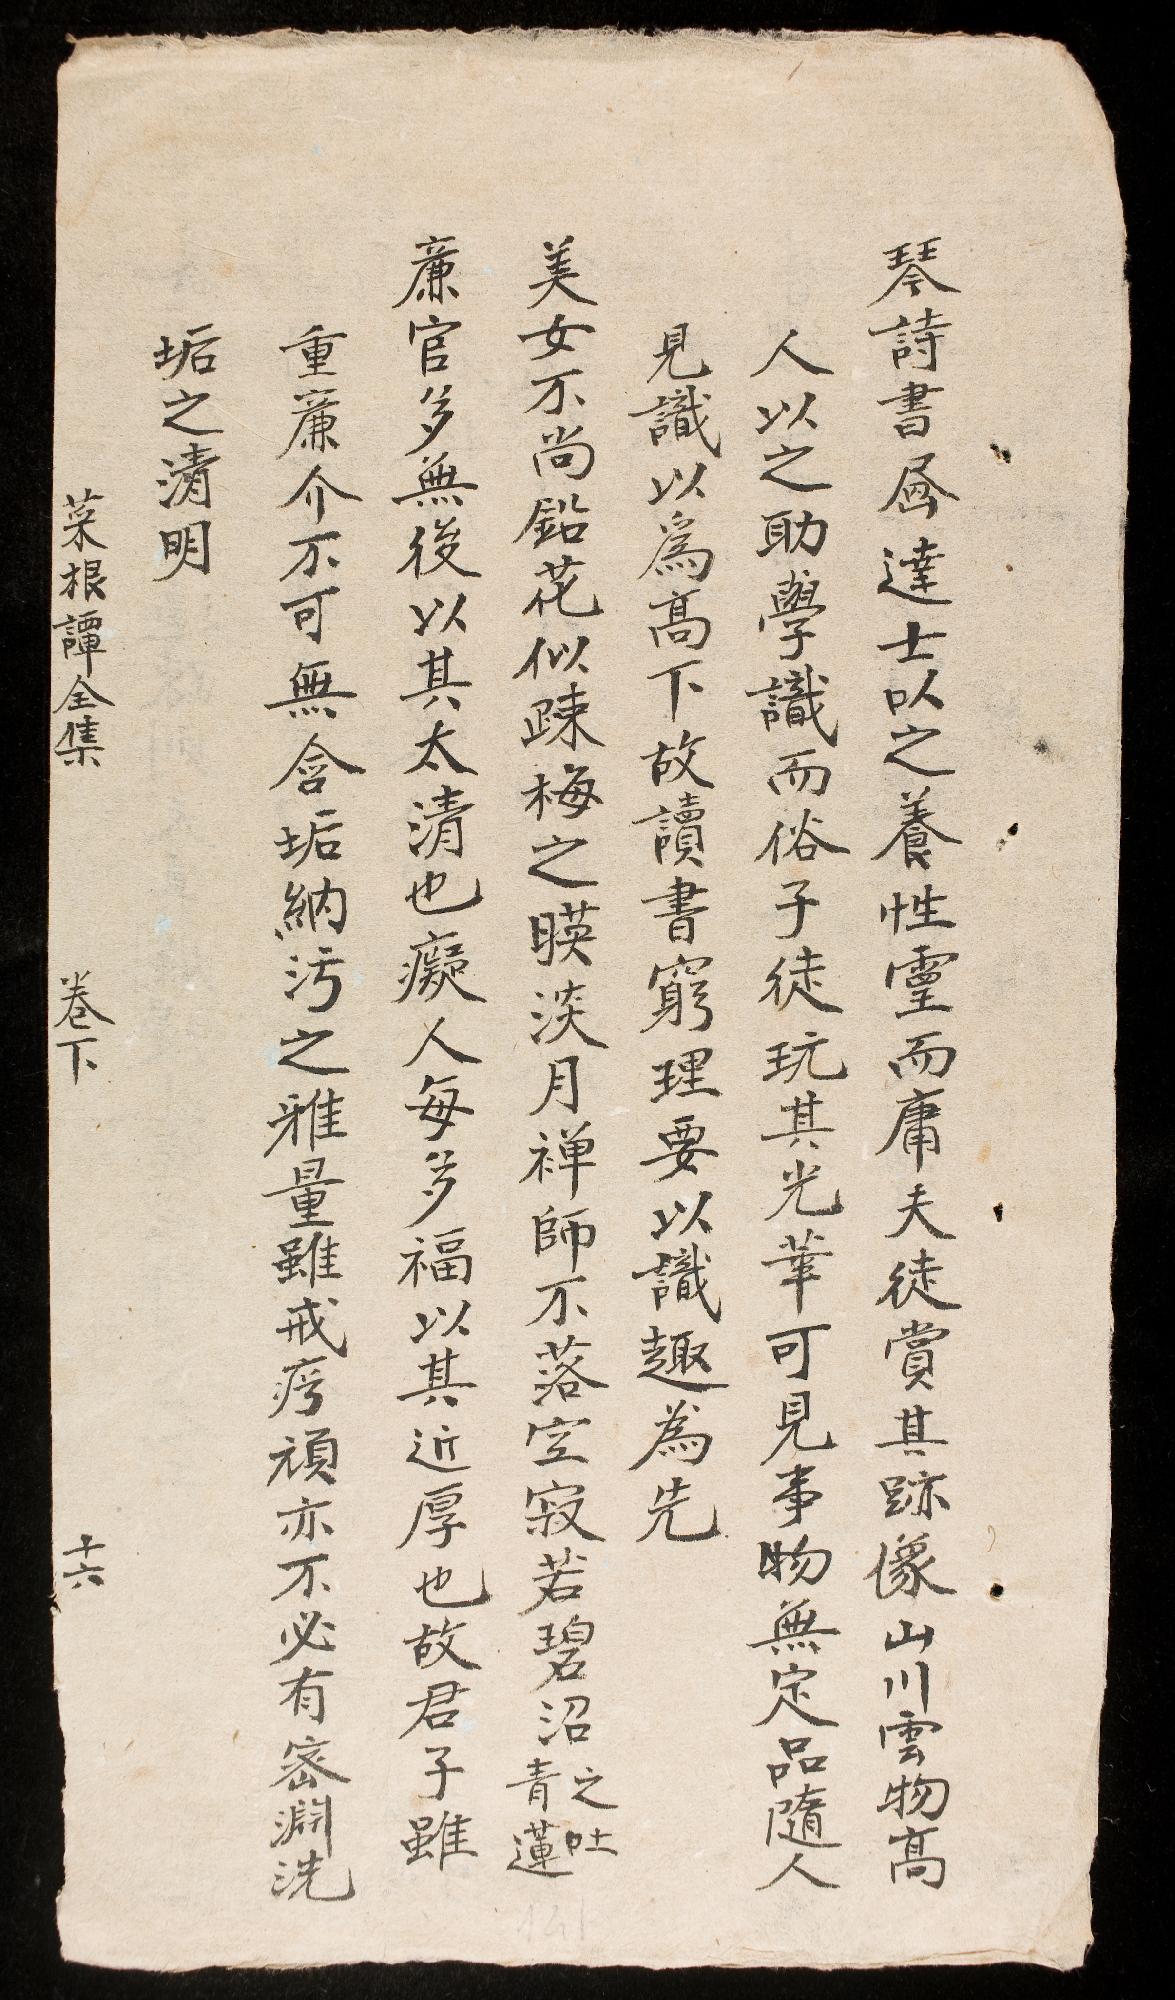 琴詩書画達士以之養性霊而庸夫徒賞其跡像山川雲物高
人以之助學識而俗子徒玩其光華可見事物無定品隨人
見識以爲高下故讀書窮理要以識趣為先
美女不尚鉛花似踈梅之暎淡月禅師不落空寂若碧沼之吐青蓮
廉官多無後以其太清也癡人每多福以其近厚也故君子雖
重廉介不可無含垢納污之雅量雖戒痴頑亦不必有察淵洗
垢之清明
菜根譚全集
卷下
十六